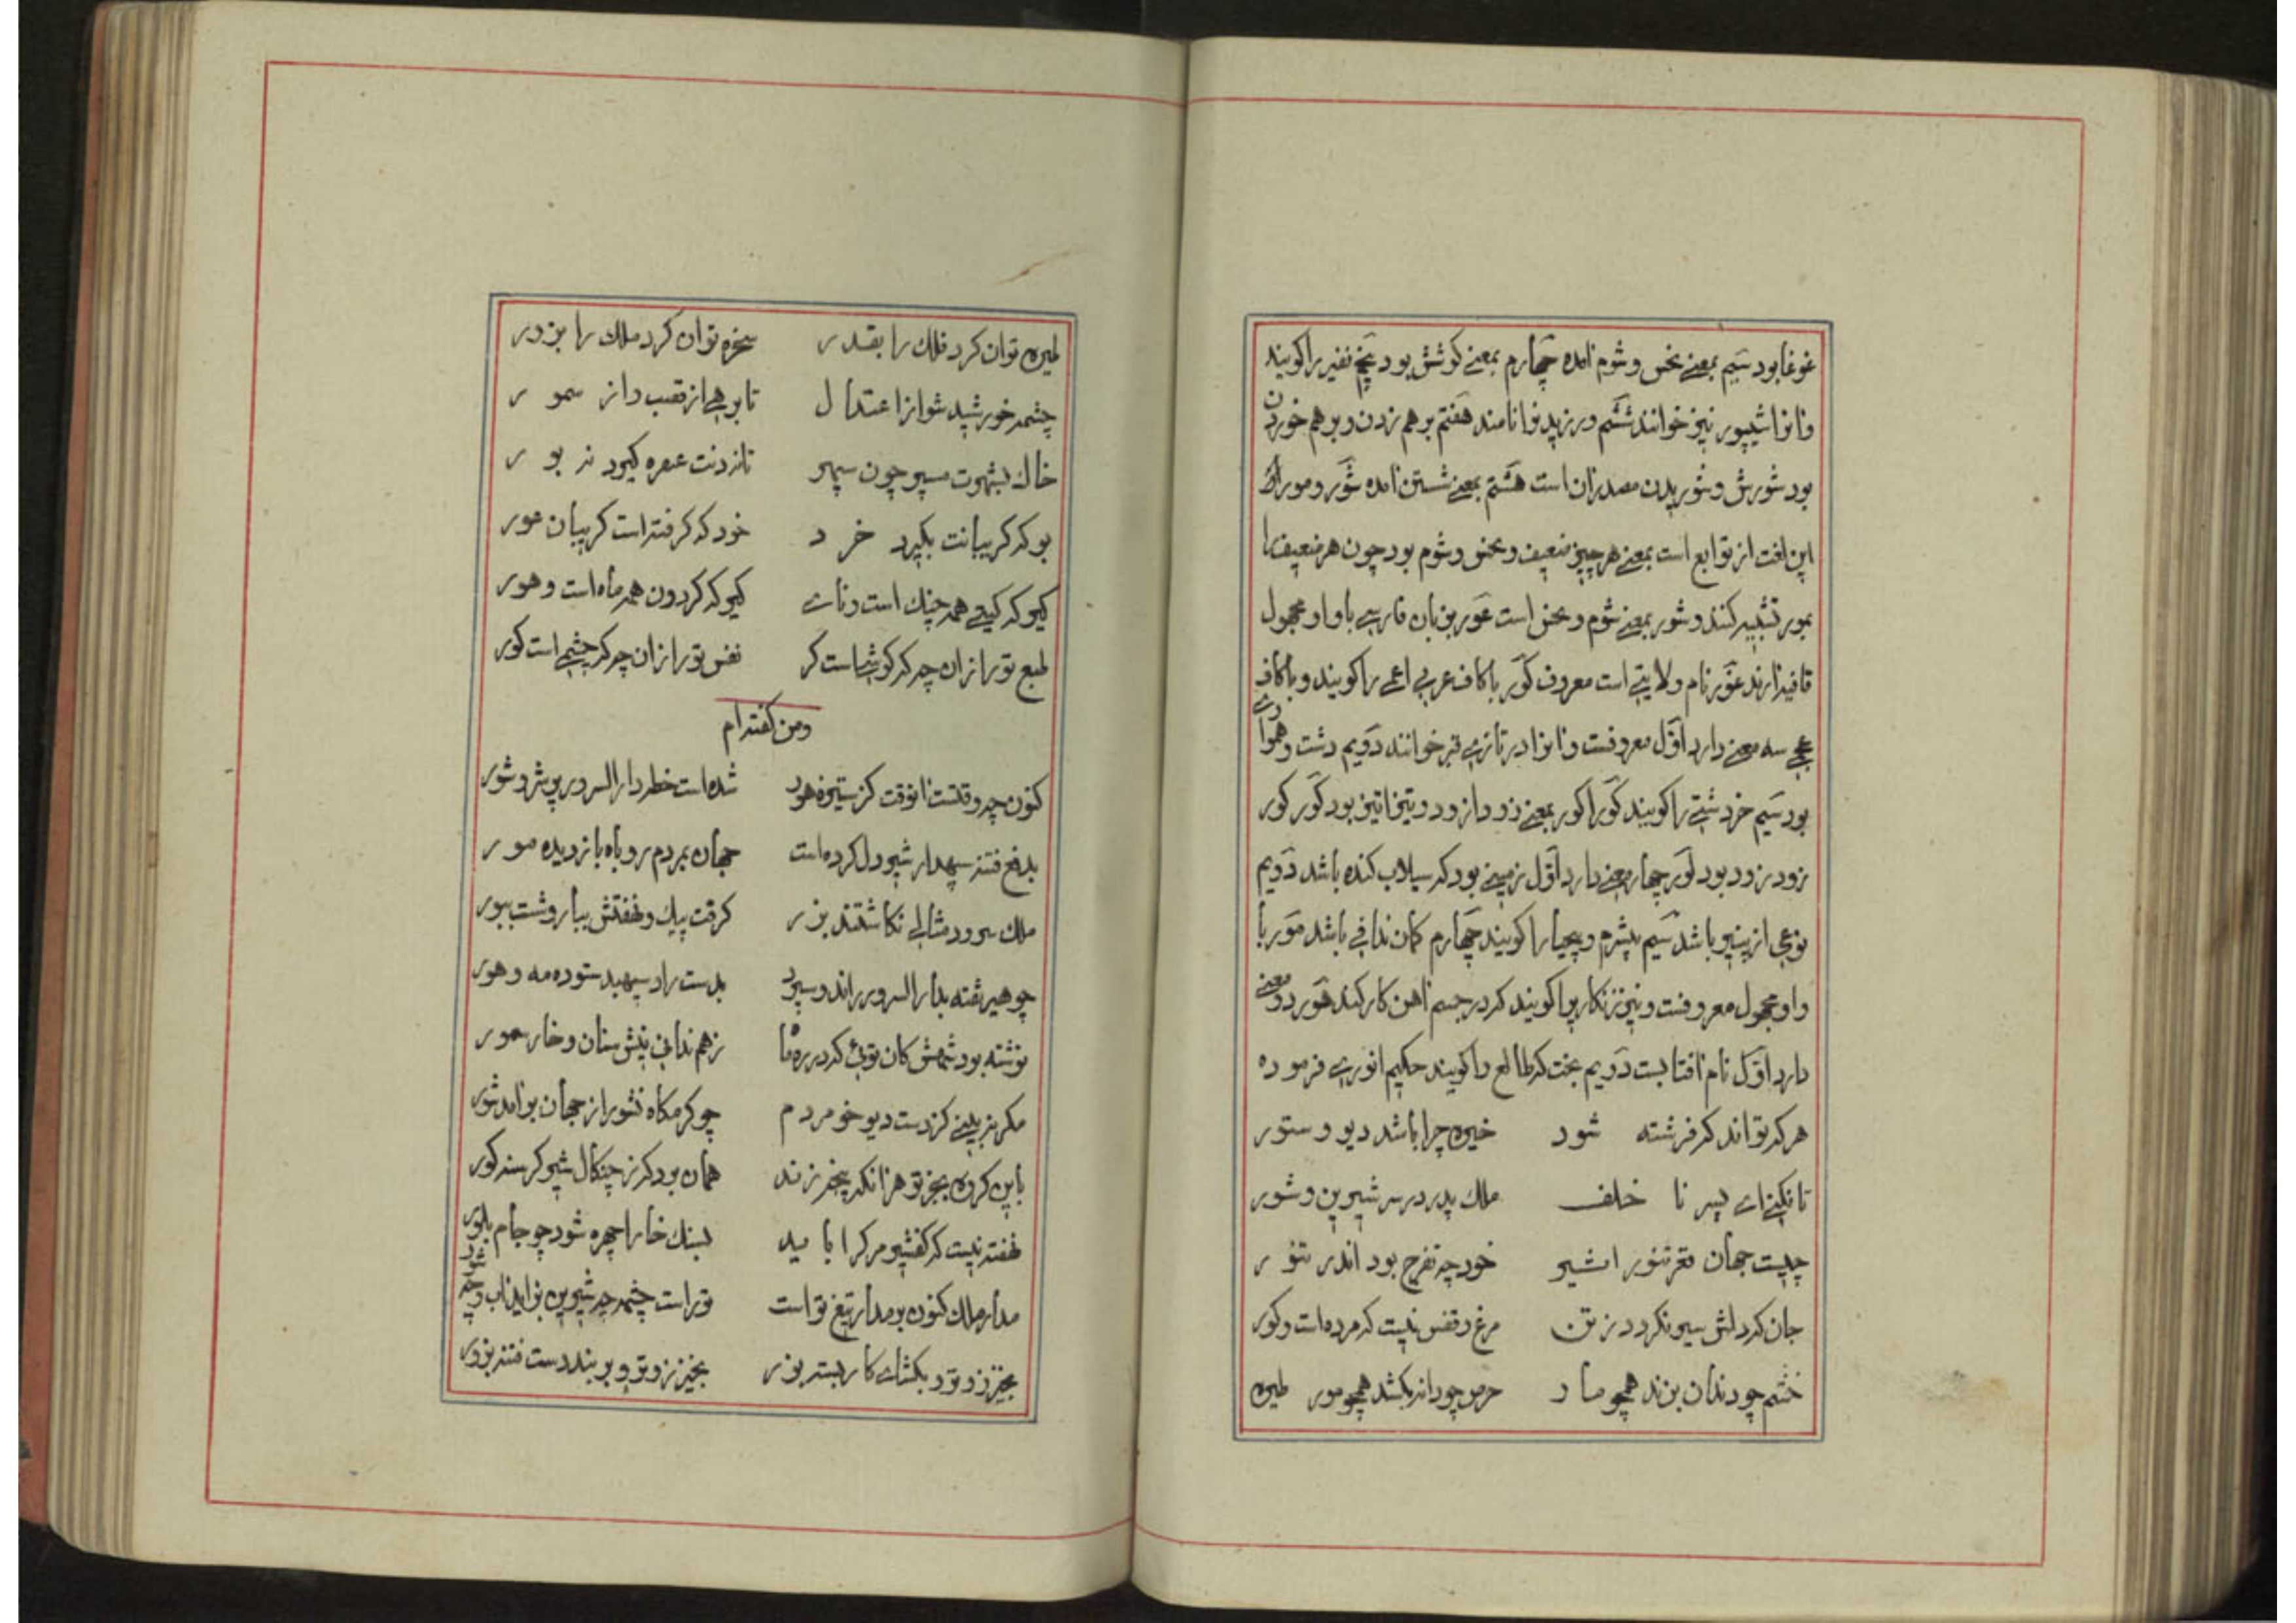 غوغا بود سیم بمعنے نحس و شوم امده چهارم بمعنے کوشش بود پنج نفیر را کویند
وانرا شیپور نیز خوانند ششم ورزیدنرا نامند هفتم برهم زدن و برهم خوردن
بود شورش و شوریدن مصدران است هشتم بمعنے شستن امده شور و مور
این لغت از توابع است بمعنے هر چیز ضعیف و نحس و شوم بود چون هر ضعیف را
بمور تشبیه کنند و شور بمعنے شوم و نحس است عور بزبان فارسے با واو مجهول
قافیه ارند غور نام ولایتے است معروف کور با کاف عربی اعمے را کویند و با کاف
عجے سه معنے دارد اول معروفست وانرا در تازے قبر خوانند دویم دشت و همواره
بود سیم خر دشتے را کویند کوراکور بمعنے زود از زود و تیزاتیز بود کور کور
زود زود بود لور چهار معنے دارد اول زمینے بود که سیلاب کنده باشد دویم
نوعی از پنیر باشد سیم بیشرم و بیحیا را کویند چهارم کمان ندافی باشد مور با
واو مجهول معروفست و نیز زنکاریرا کویند که در جسم اهن کار کند هور دو معنے
دارد اول نام افتابست دویم بخت که طالع را کویند حکیم انورے فرموده
هر که تواند که فرشته شود خیره چرا باشد دیو و ستور
تا نکنے اے پسر نا خلف ملک پدر در سر شیرین و شور
چیست جهان قعر تنور اثیر خود چه تفرج بود اندر تنور
جان که دلش سیر نکردد ز تن مرغ و قفس نیست که مرده است و کور
خشم چو دندان بزند همچو مار حرص چو دانه بکشد همچو مور طیره
طیره توان کرد فلک را بقدر سخره توان کرد ملک را بزور
چشمه خورشید شو از اعتدال تا برهے از قصب و از سمور
خاک بشهوت مسپر چون سپهر تا نزدنت عمره کیرد نه بور
بو که کریبانت بکیرد خرد خود که کرفته است کریبان عور
کیر که کیتے همه چنک است و ناے کیر که کردون همه ماه است و هور
طبع تو را زان چه که کوشے است کر نفس تو را زان چه که چشمے است کور
و من کفته ام
کنون چه وقتست انوقت کز ستیزه هور شده است خطه دار السرور پر شر و شور
بدفع فتنه سپهدار شیر دل کرده است جهان بمردم روباه باز دیده مور
ملک سرود مثالے نکاشتند بزر کرفت پیک و نهفتش بپار و شت ببور
چو هیر شفته بدار السرور راند و سپرد بدست راد سپهبد ستوده مه و هور
نوشته بود شهش کان توئی که در ره ما ز هم ندانی پیش سنان و خار سمور
مکر نه بینے کز دست دیو خو مردم چو کرمکاه نشور از جهان بر امد شور
باین کروه بجز تو هر انکه پنجه زند همان بود که ز چنکال شیر کرسنه کور
نهفته نیست که کفتیر مر کرا باید بسنک خارا چهره شود چو جام بلور
مدار ملک کنون بر مدار تیغ تو است تو راست چشمه چه شیرین بر اید اب و چه شور
بخیز زود و تو بکشاے کار بسته بزر بخیز زود و تو بر بند دست فتنه بزور